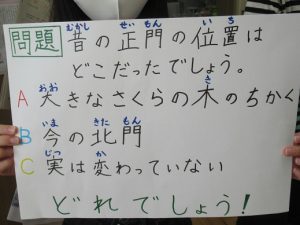 問題 昔の正門の位置は
どこだったでしょう。
A 大きなさくらの木のちかく
B 今の北門
C 実は変わっていない
どれでしょう!